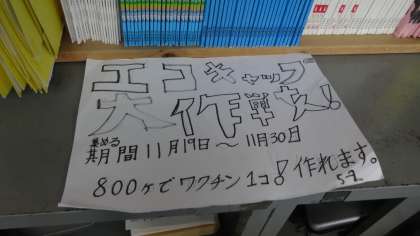 エコキャップ
大作戦!
集める
期間11月19日〜11月30日
800ヶでワクチン1コ!作れます。
5-2